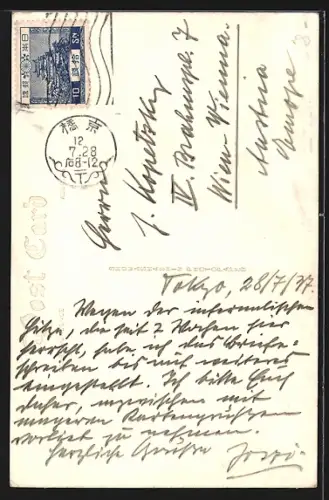 日本郵便
拾銭
10 Sn
京橋
12
7.28
后8-12
Post Card
Herrn
J. Kopetzky
IV. Brahmspl. 7
Wien Vienna.
Austria
Europe
Tokyo, 28/7/37
Wegen der infernalischen
Hitze, die seit 2 Wochen hier
herrscht, habe ich das Briefe-
schreiben bis auf weiteres
eingestellt. Ich bitte Euch
daher, inzwischen mit
mageren Kartengrüssen
vorlieb zu nehmen.
Herzliche Grüsse